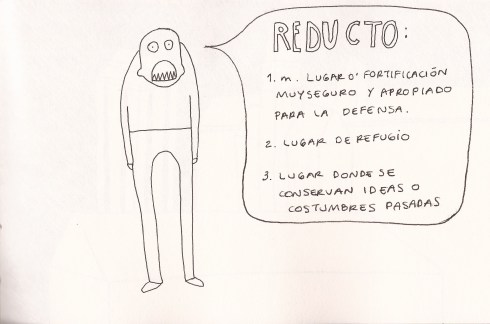 REDUCTO:
1. m. LUGAR O' FORTIFICACIÓN
MUYSEGURO Y APROPIADO
PARA LA DEFENSA.
2. LUGAR DE REFUGIO
3. LUGAR DONDE SE
CONSERVAN IDEAS O
COSTUMBRES PASADAS